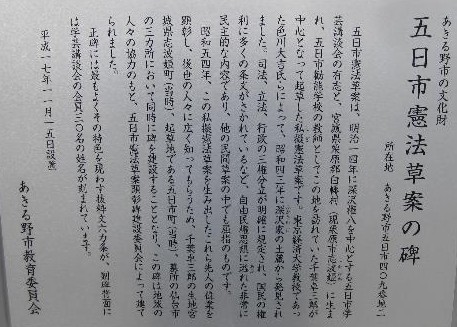 あきる野市の文化財
五日市憲法草案の碑
所在地 あきる野市五日市四〇九番地二
五日市憲法草案は、明治一四年に深沢権八を中心とする五日市学
芸講談会の有志と、宮城県栗原郡白幡村（現栗原市志波姫）に生ま
れ、五日市勧能学校の教師としてこの地を訪れていた千葉卓三郎が
中心となって起草した私擬憲法草案です。東京経済大学教授であっ
た色川大吉氏らによって、昭和四三年に深沢家の土蔵から発見され
ました。司法、立法、行政の三権分立が明確に規定され、国民の権
利に多くの条文がさかれているなど、自由民権思想に溢れた非常に
民主的な内容であり、他の民間草案の中でも屈指のものです。
昭和五四年、この私擬憲法草案を生み出したこれら先人の偉業を
顕彰し、後世の人々に広く知ってもらうため、千葉卓三郎の生地宮
城県志波姫町（当時）、起草地である五日市町（当時）、墓所の仙台市
の三カ所において同時に碑を建設することとなり、この碑は地域の
人々の協力のもと、五日市憲法草案顕彰碑建設委員会によって建て
られました。
正碑には最もよくその特色を現わす抜粋文六カ条が、副碑背面に
は学芸講談会の会員三〇名の姓名が刻まれています。
平成一七年一一月一五日設置
あきる野市教育委員会